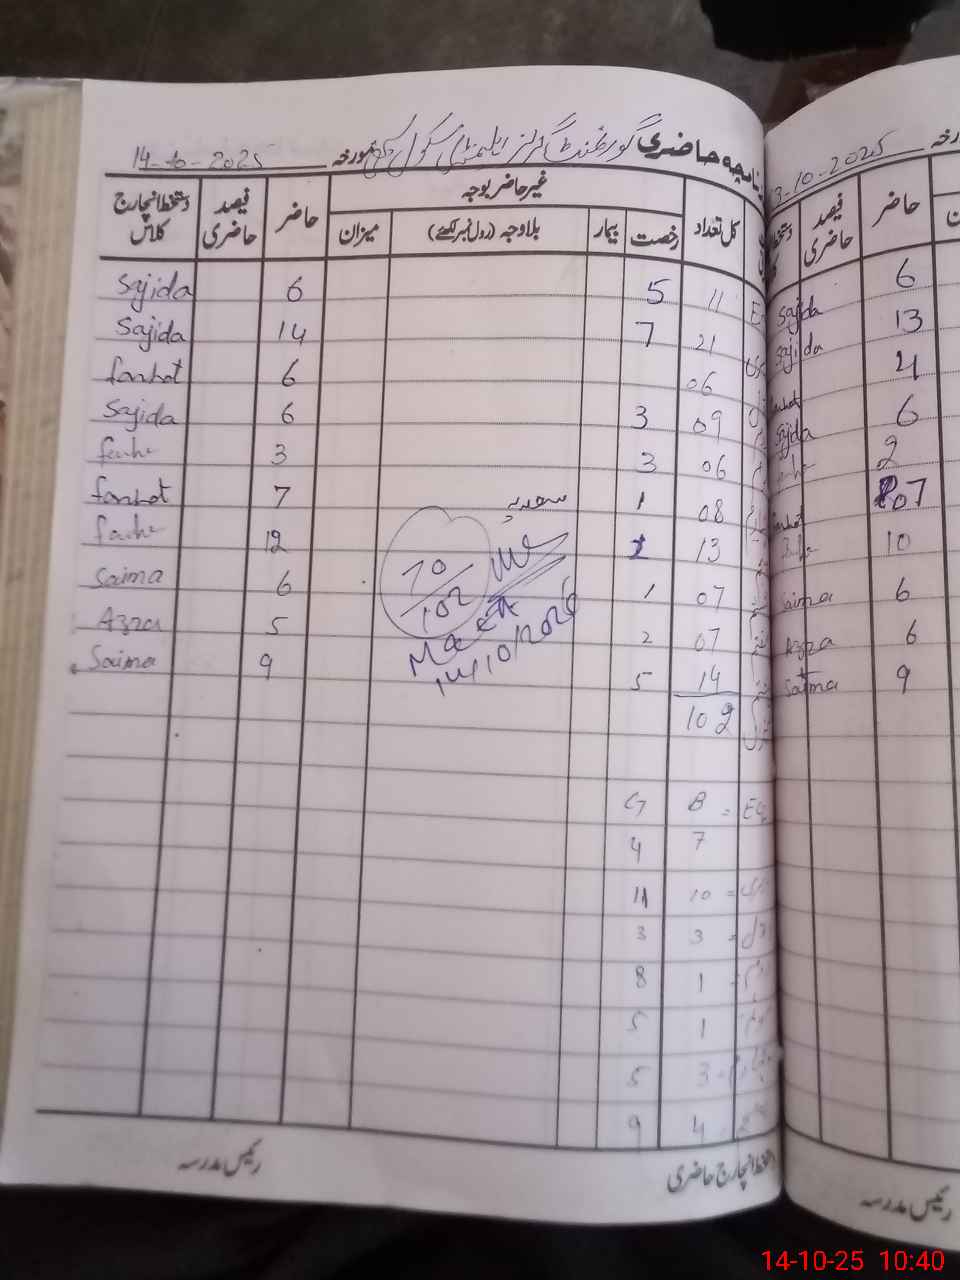 حاضری گورنمنٹ گرلز ایلیمنٹری سکول مورخہ 14-10-2025
کل تعداد غیر حاضر بوجہ حاضر فیصد حاضری دستخط انچارج کلاس
رخصت بیمار بلاوجہ (رول نمبر لکھئے) میزان
11 5 6 Sajida
21 7 14 Sajida
06 6 farhat
09 3 6 Sajida
06 3 3
08 1 7 farhat
13 1 12
07 1 6 Saima
07 2 5 Azra
14 5 9 Saima
102
سعدیہ
70
102
14/10/2025
B G
7 4
10 11
3 3
1 8
1 5
3 5
4 9
دستخط انچارج حاضری
رئیس مدرسہ
13-10-2025
حاضر فیصد حاضری
6 Sajida
13 Sajida
4
6 Sajida
2
07
10
6 Saima
6 Azra
9 Saima
رئیس مدرسہ
14-10-25 10:40